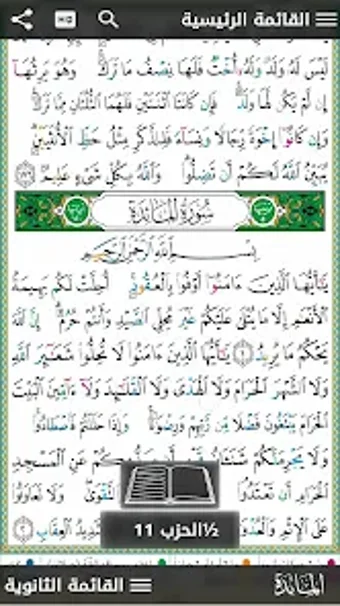 القائمة الرئيسية
لَيْسَ لَهُ وَلَدٌ وَلَهُ أُخْتٌ فَلَهَا نِصْفُ مَا تَرَكَ وَهُوَ يَرِثُهَا
إِن لَّمْ يَكُن لَّهَا وَلَدٌ فَإِن كَانَتَا اثْنَتَيْنِ فَلَهُمَا الثُّلُثَانِ مِمَّا تَرَكَ
وَإِن كَانُوا إِخْوَةً رِّجَالًا وَنِسَاءً فَلِلذَّكَرِ مِثْلُ حَظِّ الْأُنثَيَيْنِ
يُبَيِّنُ اللَّهُ لَكُمْ أَن تَضِلُّوا وَاللَّهُ بِكُلِّ شَيْءٍ عَلِيمٌ
سُورَةُ الْمَائِدَةِ
بِسْمِ اللَّهِ الرَّحْمَٰنِ الرَّحِيمِ
يَٰأَيُّهَا الَّذِينَ ءَامَنُوا أَوْفُوا بِالْعُقُودِ أُحِلَّتْ لَكُم بَهِيمَةُ
الْأَنْعَٰمِ إِلَّا مَا يُتْلَىٰ عَلَيْكُمْ غَيْرَ مُحِلِّي الصَّيْدِ وَأَنتُمْ حُرُمٌ إِنَّ اللَّهَ
يَحْكُمُ مَا يُرِيدُ ١ يَٰأَيُّهَا الَّذِينَ ءَامَنُوا لَا تُحِلُّوا شَعَٰئِرَ اللَّهِ
وَلَا الشَّهْرَ الْحَرَامَ وَلَا الْهَدْيَ وَلَا الْقَلَٰئِدَ وَلَا ءَامِّينَ الْبَيْتَ
الْحَرَامَ يَبْتَغُونَ فَضْلًا مِّن رَّبِّهِمْ وَرِضْوَٰنًا وَإِذَا حَلَلْتُمْ فَاصْطَادُوا
وَلَا يَجْرِمَنَّكُمْ شَنَـَٔانُ عَنِ الْمَسْجِدِ
الْحَرَامِ أَن تَعْتَدُوا وَلَا تَعَاوَنُوا
عَلَى الْإِثْمِ الْعِقَابِ ٢
½الحزب 11
القائمة الثانوية
المَائِدَة